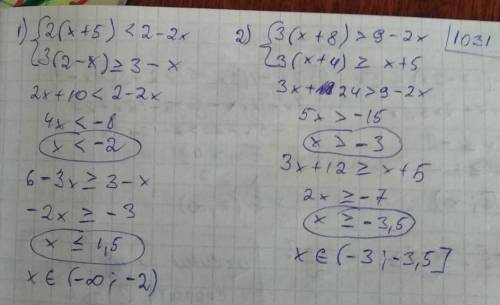 1) { 2(x+5) < 2-2x
3(2-x) ≥ 3-x
2x+10 < 2-2x
4x < -8
x < -2
6-3x ≥ 3-x
-2x ≥ -3
x ≤ 1,5
x ∈ (-∞; -2)
2) { 3(x+8) > 9-2x
3(x+4) ≥ x+5
3x+24 > 9-2x
5x > -15
x > -3
3x+12 ≥ x+5
2x ≥ -7
x ≥ -3,5
x ∈ (-3; -3,5]
1031